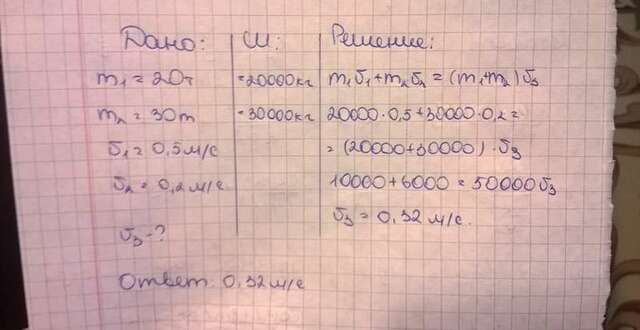 Дано: СИ: Решение:
m₁ = 20т = 20000 кг m₁υ₁+m₂υ₂ = (m₁+m₂)υ₃
m₂ = 30т = 30000 кг 20000·0,5+30000·0,2=
υ₁= 0,5 м/с = (20000+30000)·υ₃
υ₂ = 0,2 м/с 10000+6000 = 50000υ₃
υ₃ = 0,32 м/с.
υ₃ - ?
Ответ: 0,32 м/с